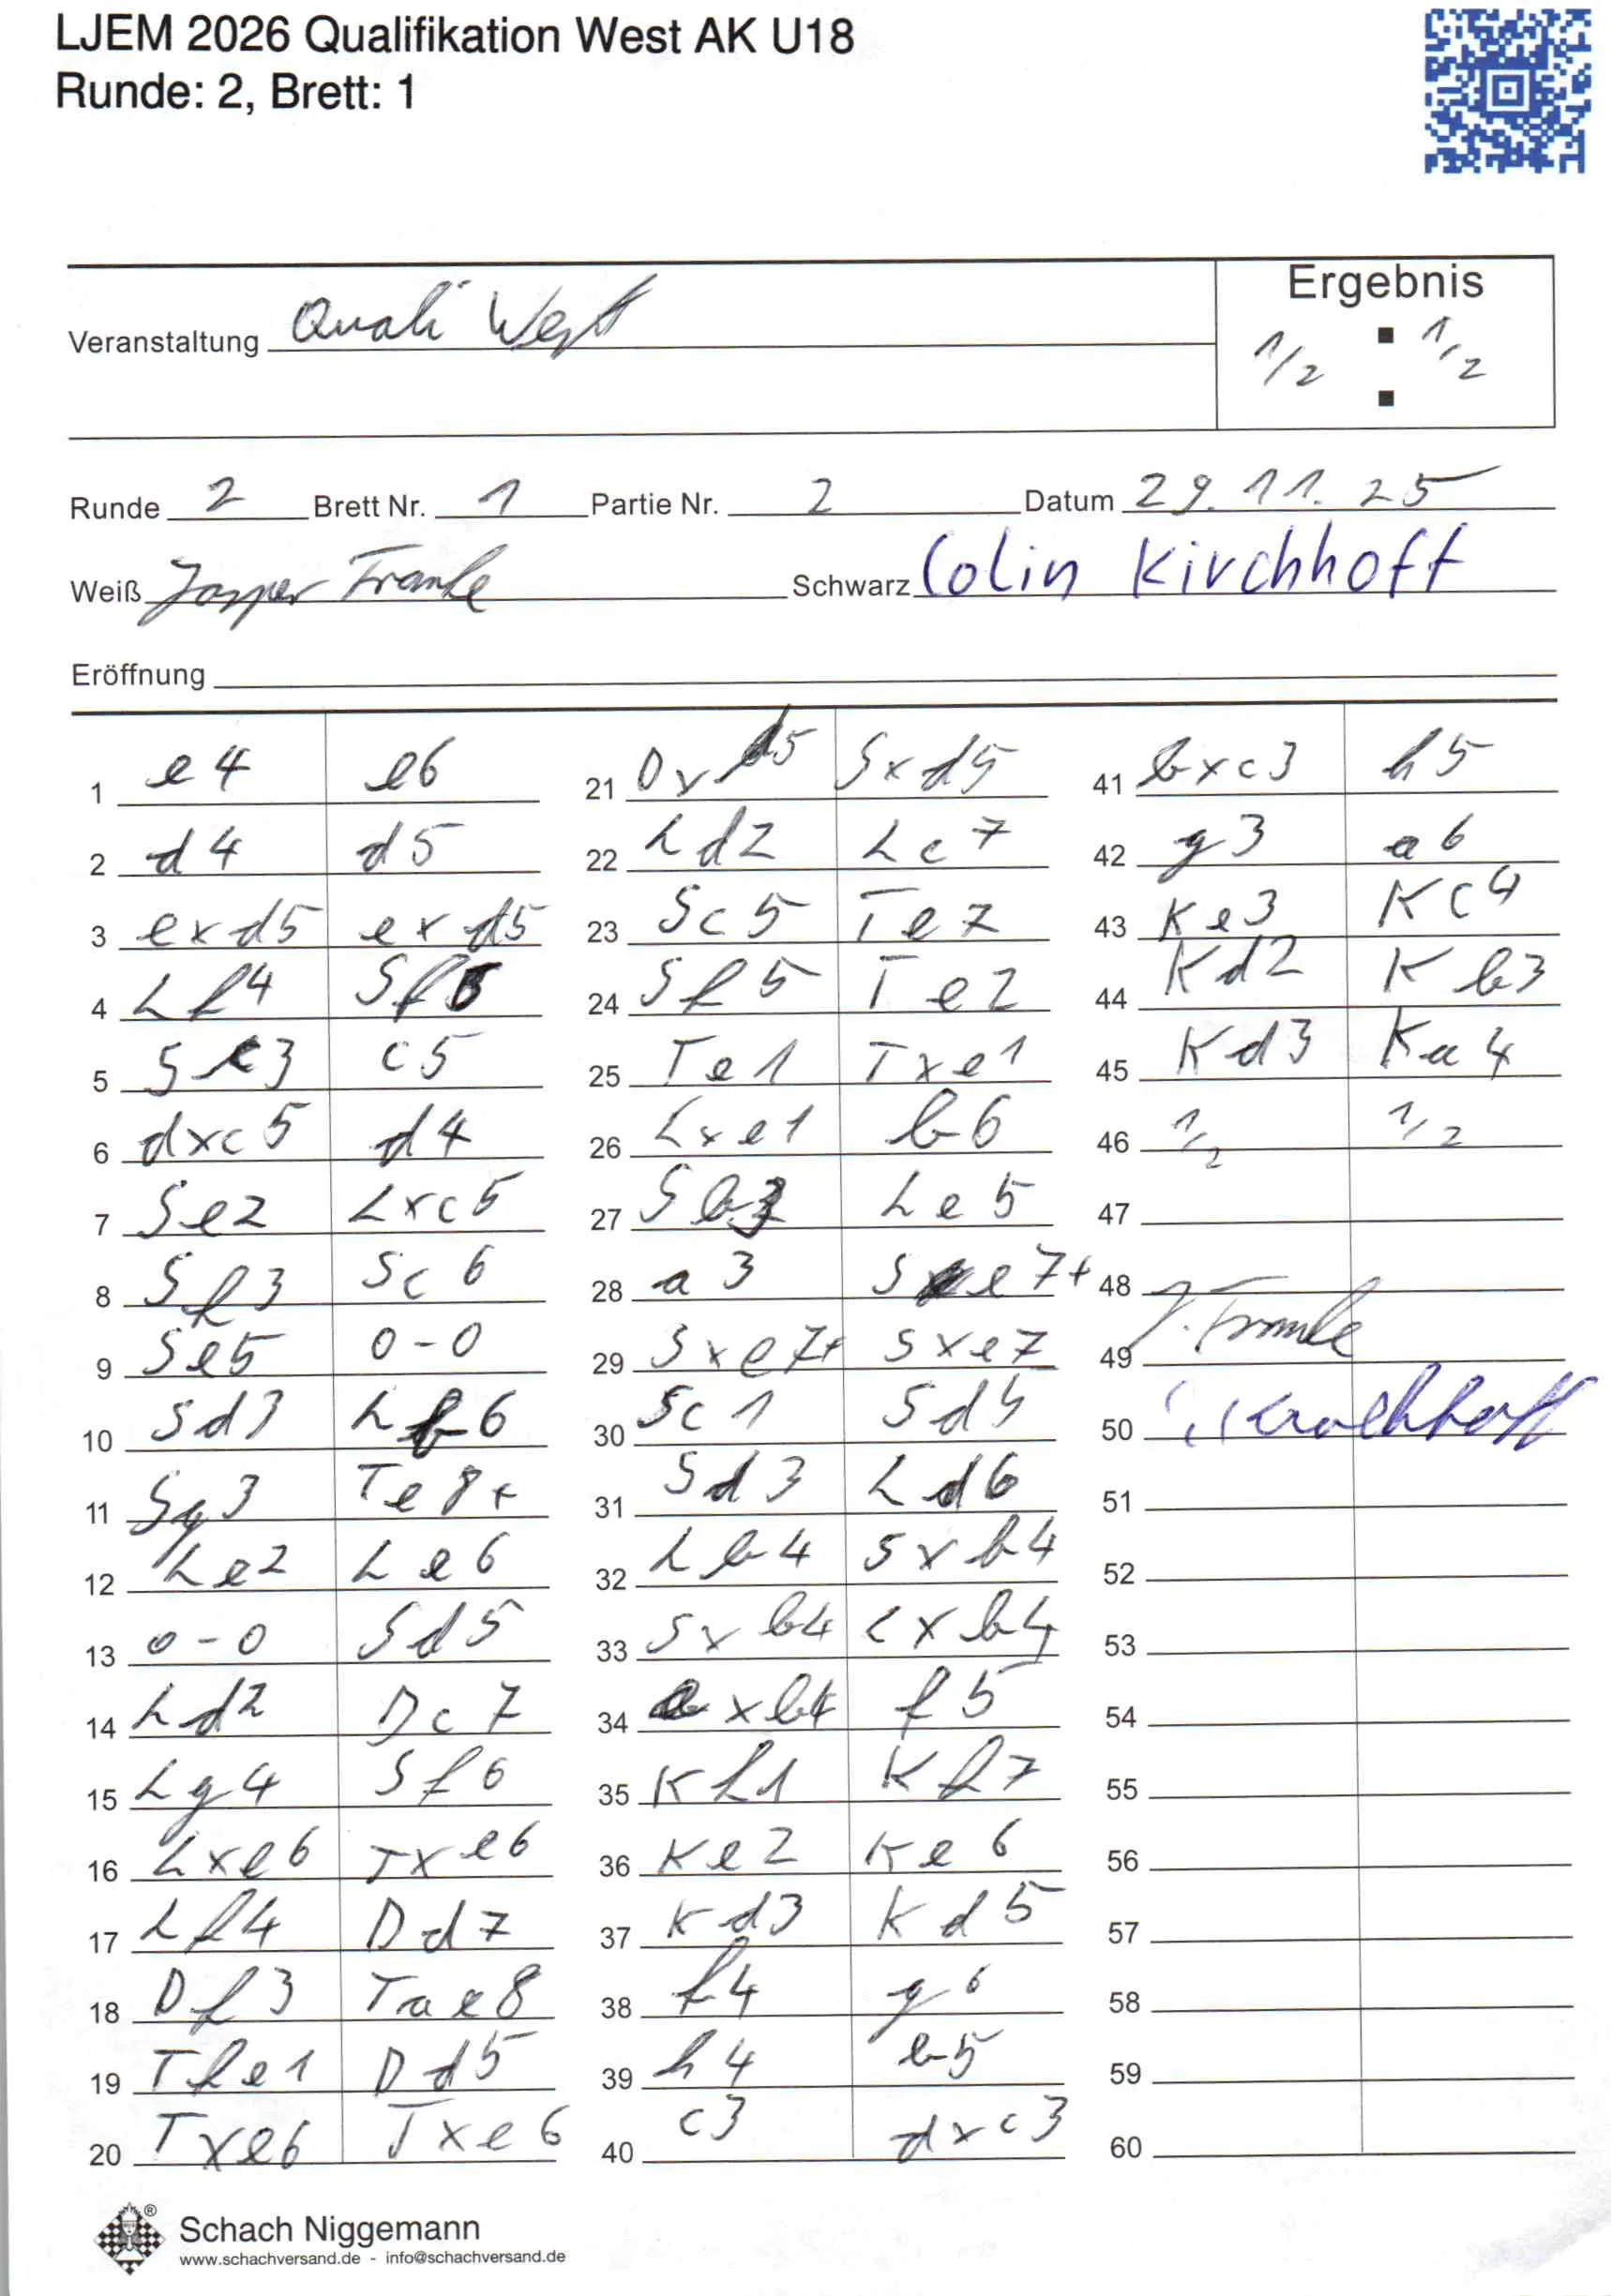 LJEM 2026 Qualifikation West AK U18
Runde: 2, Brett: 1
Ergebnis
Veranstaltung Quali West
1/2 : 1/2
Runde 2 Brett Nr. 1 Partie Nr. 2 Datum 29.11.25
Weiß Jasper Franke Schwarz Colin Kirchhoff
Eröffnung
1 e4 e6
2 d4 d5
3 exd5 exd5
4 Lf4 Sf6
5 Sc3 c5
6 dxc5 d4
7 Se2 Lxc5
8 Sf3 Sc6
9 Se5 0-0
10 Sd3 Lb6
11 Sg3 Te8+
12 Le2 Le6
13 0-0 Sd5
14 Ld2 Dc7
15 Lg4 Sf6
16 Lxe6 Txe6
17 Lf4 Dd7
18 Df3 Tae8
19 Tfe1 Dd5
20 Txe6 Txe6
21 Dxd5 Sxd5
22 Ld2 Lc7
23 Sc5 Te7
24 Sf5 Te2
25 Te1 Txe1
26 Lxe1 b6
27 Sb3 Le5
28 a3 Se7+
29 Sxe7+ Sxe7
30 Sc1 Sd5
31 Sd3 Ld6
32 Lb4 Sxb4
33 Sxb4 Lxb4
34 axb4 f5
35 Kf1 Kf7
36 Ke2 Ke6
37 Kd3 Kd5
38 f4 g6
39 h4 b5
40 c3 dxc3
41 bxc3 h5
42 g3 a6
43 Ke3 Kc4
44 Kd2 Kb3
45 Kd3 Ka4
46 1/2 1/2
47
48
49 J. Franke
50 Kirchhoff
51
52
53
54
55
56
57
58
59
60
Schach Niggemann
www.schachversand.de - info@schachversand.de